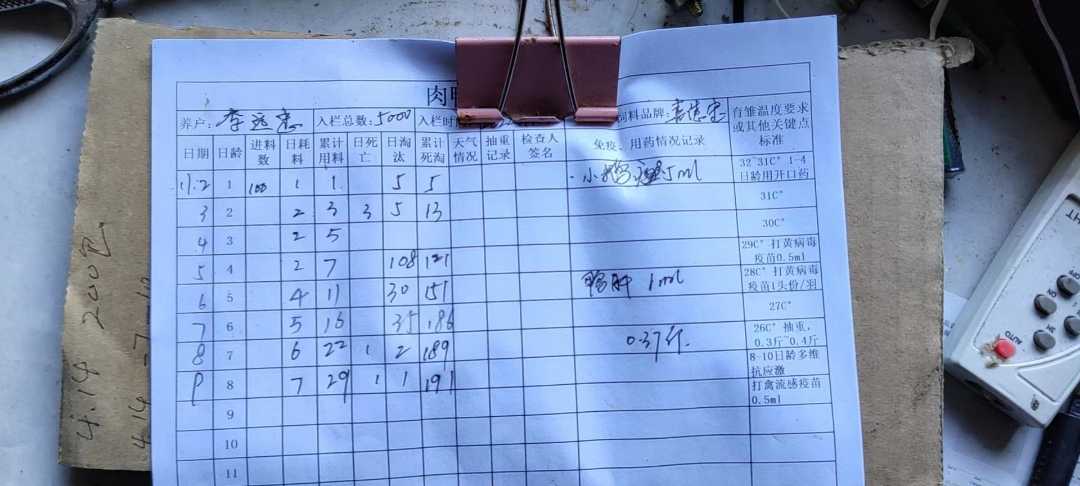 肉
养户: 李 入栏总数: 5000 入栏时 饲料品牌: 有雏温度要求或其他关键点标准
日期 日龄 进料数 日耗料 累计用料 日死亡 日淘汰 累计死淘 天气情况 抽重记录 检查人签名 免疫、用药情况记录
11.2 1 100 1 1 5 5 小鹅 5ml 32~31C° 1-4日龄用开口药
3 2 2 3 3 5 13 31C°
4 3 2 5 30C°
5 4 2 7 108 121 29C° 打黄病毒疫苗0.5ml
6 5 4 11 30 151 鸭肝 1ml 28C° 打黄病毒疫苗1头份/羽
7 6 5 16 35 186 27C°
8 7 6 22 1 2 189 0.37斤. 26C° 抽重,0.3斤~0.4斤
9 8 7 29 1 1 191 8-10日龄多维抗应激
9 打禽流感疫苗0.5ml
10
11
4.14 200包
4.14
AUTO